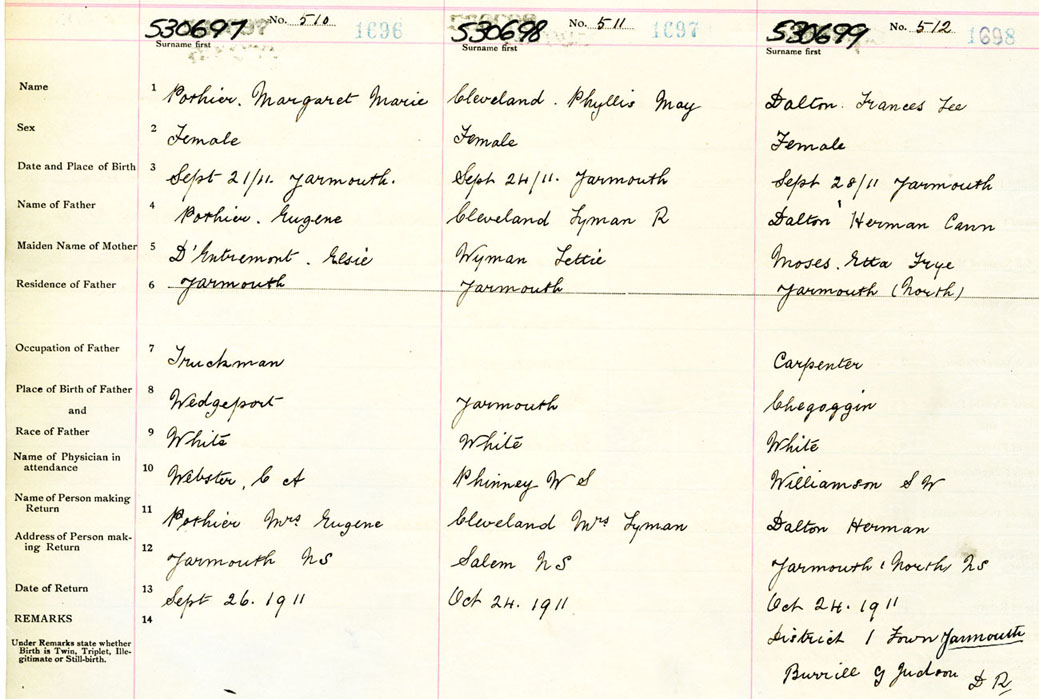 530697 No. 510 1696 530698 No. 511 1697 530699 No. 512 1698
Surname first Surname first Surname first
Name 1 Pothier. Margaret Marie Cleveland. Phyllis May Dalton. Frances Lee
Sex 2 Female Female Female
Date and Place of Birth 3 Sept 21/11. Yarmouth. Sept 24/11. Yarmouth Sept 28/11 Yarmouth
Name of Father 4 Pothier. Eugene Cleveland Lyman R Dalton Herman Cann
Maiden Name of Mother 5 D'Entremont. Elsie Wyman Lettie Moses. Etta Frye
Residence of Father 6 Yarmouth Yarmouth Yarmouth (North)
Occupation of Father 7 Truckman Carpenter
Place of Birth of Father 8 Wedgeport Yarmouth Chegoggin
and
Race of Father 9 White White White
Name of Physician in
attendance 10 Webster, C A Phinney W S Williamson S W
Name of Person making
Return 11 Pothier Mrs Eugene Cleveland Mrs Lyman Dalton Herman
Address of Person mak-
ing Return 12 Yarmouth NS Salem NS Yarmouth (North) NS
Date of Return 13 Sept 26. 1911 Oct 24. 1911 Oct 24. 1911
REMARKS 14
Under Remarks state whether
Birth is Twin, Triplet, Ille-
gitimate or Still-birth.
District 1 Town Yarmouth
Burrill G Judson D R